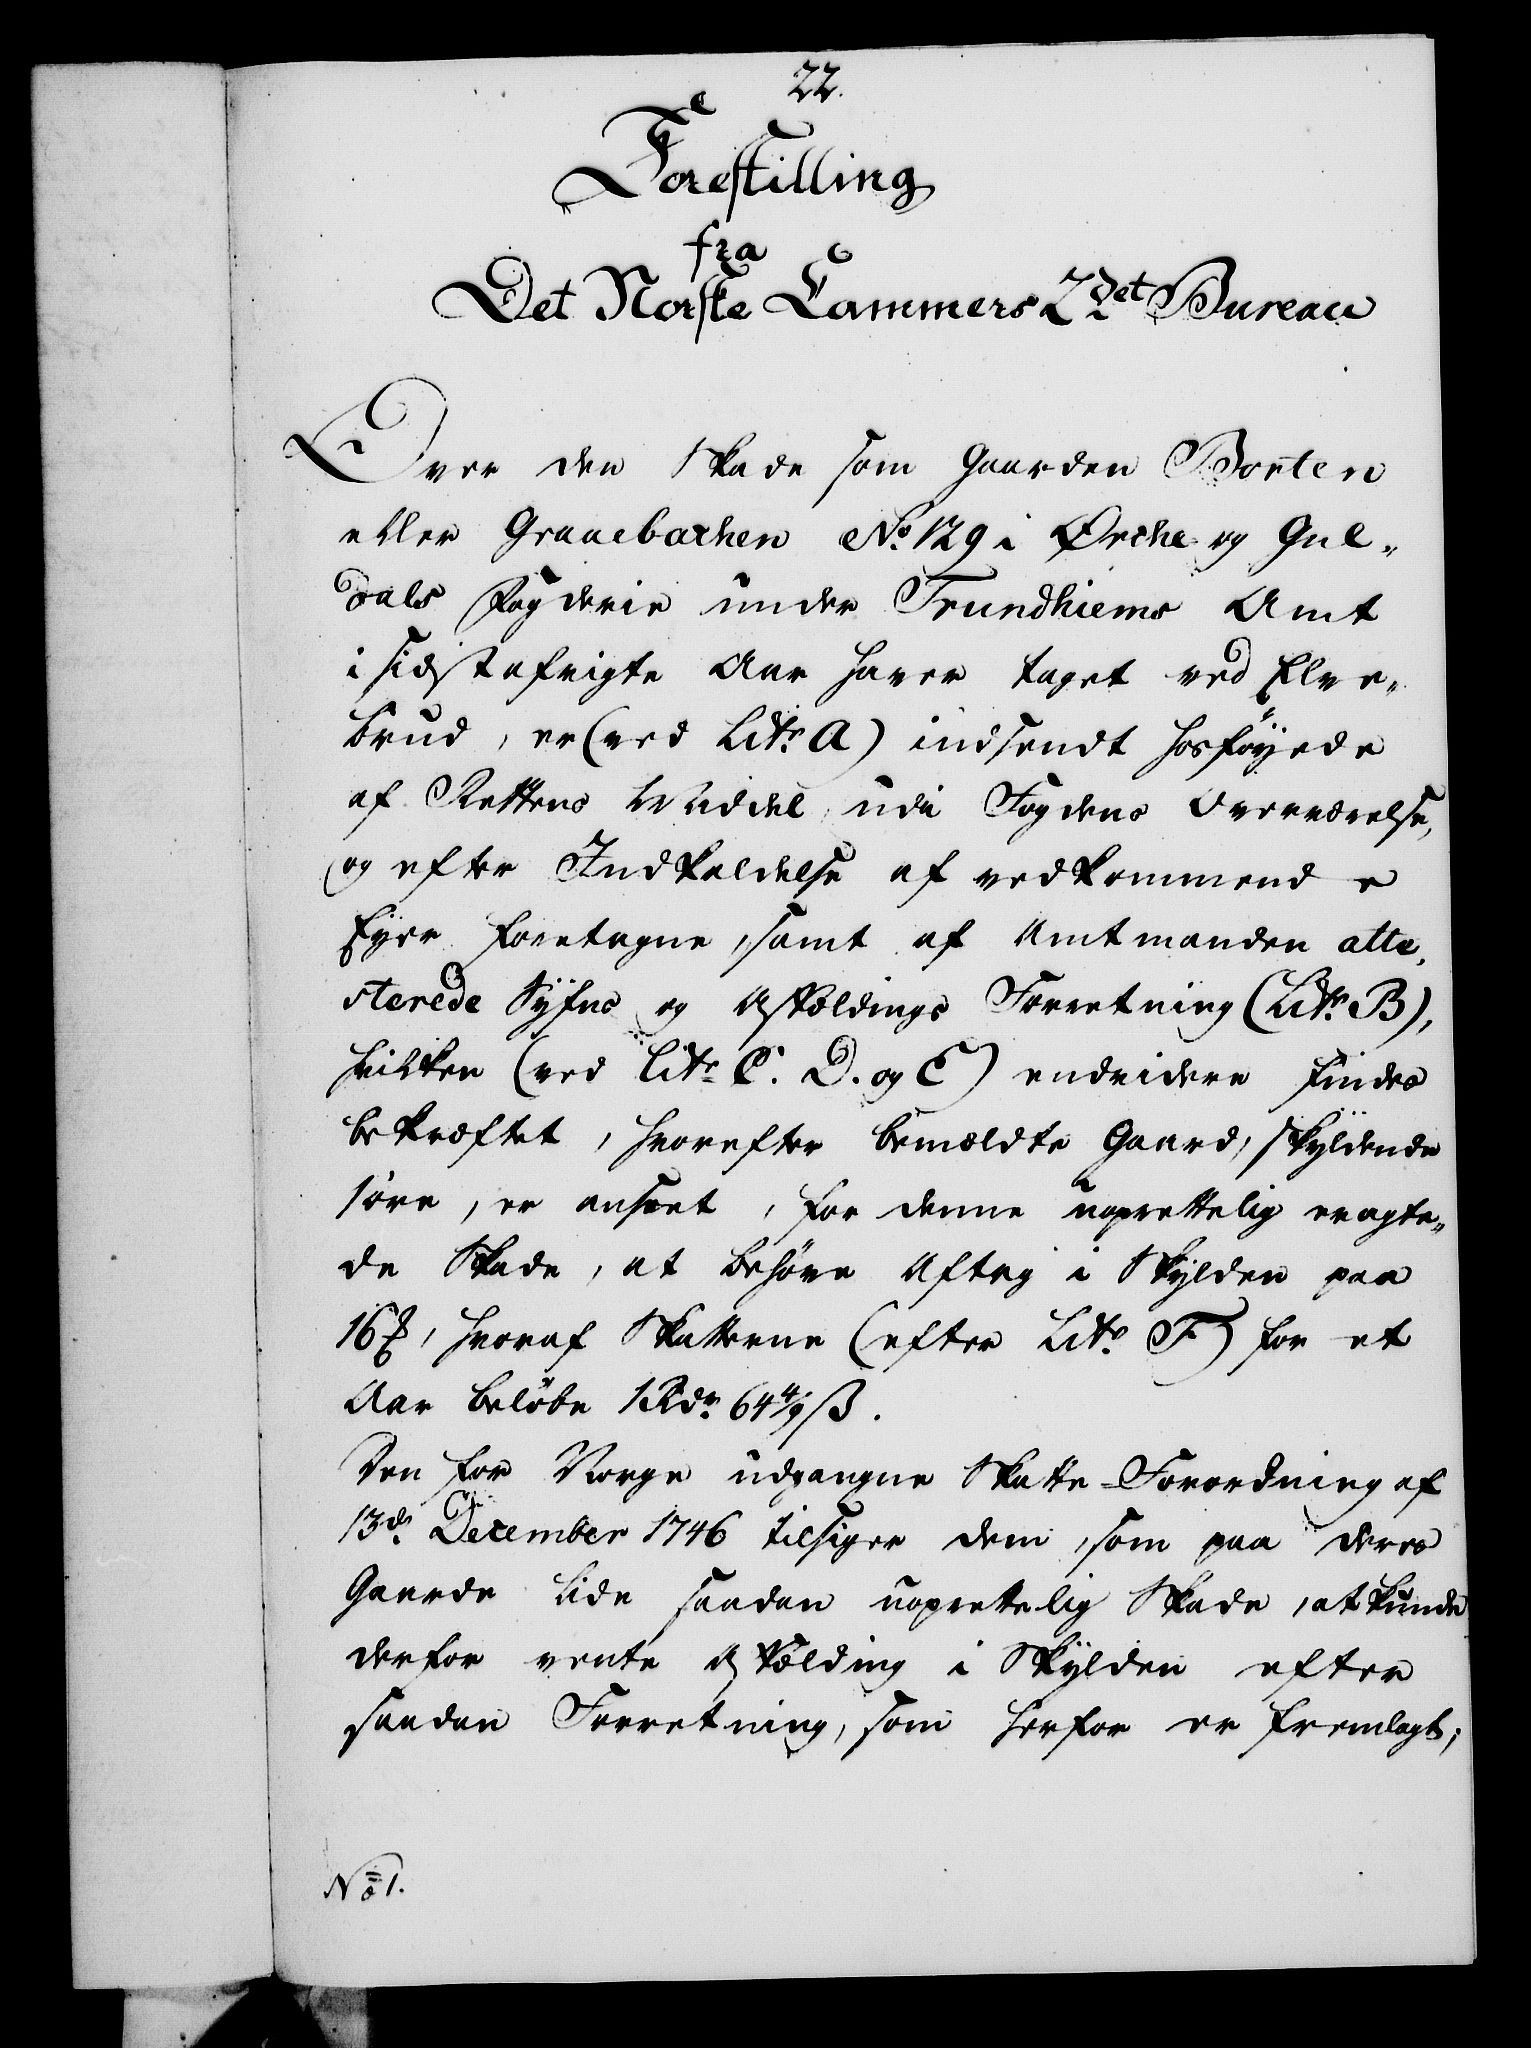 22.
Forestilling
fra
Det Norske Cammers 2det Bureau
Over den Skade som Gaarden Borten
eller Graaebachen No. 129 i Ørche og Gul-
dals Fogderie under Trundhiems Amt
i sidstafvigte Aar haver taget ved Elve-
brud, er (ved Litr. A) indsendt hosföyede
af Rettens Middel udi Fogdens Overværelse,
og efter Indkaldelse af vedkommende
Eyer foretagne, samt af Amtmanden atte-
sterede Syfns og Afkældings Forretning (Litr. B),
hvilken (ved Litr. C. D. og E) endvidere findes
bekræftet, hvorefter bemældte Gaard, skyldende
1 öre, er anseet, for denne uoprettelig eragte-
de Skade, at behöve Aftag i Skylden paa
16 , hvoraf Skatterne (efter Litr. F) for et
Aar belöbe 1 Rdr. 64 4/9 ß.
Den for Norge udgangne Skatte-Forordning af
13de December 1746 tilsiger dem, som paa deres
Gaarde lide saadan uoprettelig Skade, at kunde
derfor vente Afkælding i Skylden efter
saadan Forretning, som herfor er fremlagt;
No. 1.